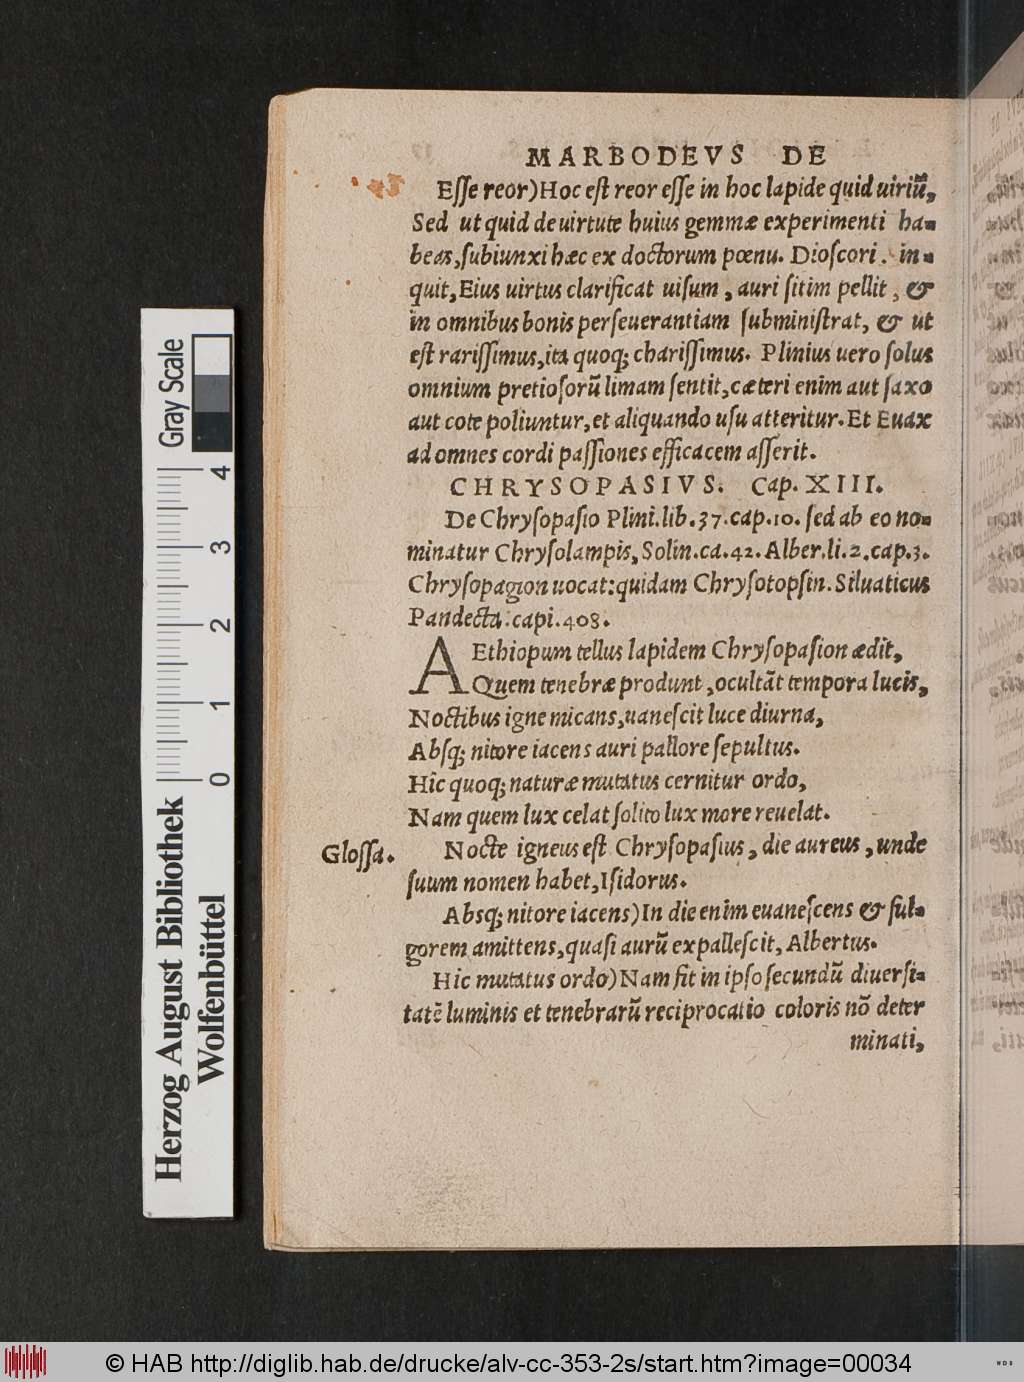 MARBODEVS DE
Eſſe reor) Hoc eſt reor eſſe in hoc lapide quid uiriũ,
Sed ut quid de uirtute huius gemmæ experimenti ha-
beas, ſubiunxi hæc ex doctorum pœnu. Dioſcori. in-
quit, Eius uirtus clarificat uiſum, auri ſitim pellit, &
in omnibus bonis perſeuerantiam ſubminiſtrat, & ut
eſt rariſſimus, ita quoq; chariſſimus. Plinius uero ſolus
omnium pretioſorũ limam ſentit, cæteri enim aut ſaxo
aut cote poliuntur, et aliquando uſu atteritur. Et Euax
ad omnes cordi paſſiones efficacem aſſerit.
CHRYSOPASIVS. Cap. XIII.
De Chryſopaſio Plini. lib. 37. cap. 10. ſed ab eo no-
minatur Chryſolampis, Solin. ca. 42. Alber. li. 2. cap. 3.
Chryſopagion uocat: quidam Chryſotopſin. Siluaticus
Pandecta. capi. 408.
AEthiopum tellus lapidem Chryſopaſion ædit,
Quem tenebræ produnt, ocultãt tempora lucis,
Noctibus igne micans, uaneſcit luce diurna,
Abſq; nitore iacens auri pallore ſepultus.
Hîc quoq; naturæ mutatus cernitur ordo,
Nam quem lux celat ſolito lux more reuelat.
Gloſſa. Nocte igneus eſt Chryſopaſius, die aureus, unde
ſuum nomen habet, Iſidorus.
Absq; nitore iacens) In die enim euaneſcens & ful-
gorem amittens, quaſi aurũ expalleſcit, Albertus.
Hic mutatus ordo) Nam fit in ipſo ſecundũ diuerſi-
tatẽ luminis et tenebrarũ reciprocatio coloris nõ deter
minati,
Gray Scale
4
3
2
1
0
Herzog August Bibliothek
Wolfenbüttel
© HAB http://diglib.hab.de/drucke/alv-cc-353-2s/start.htm?image=00034